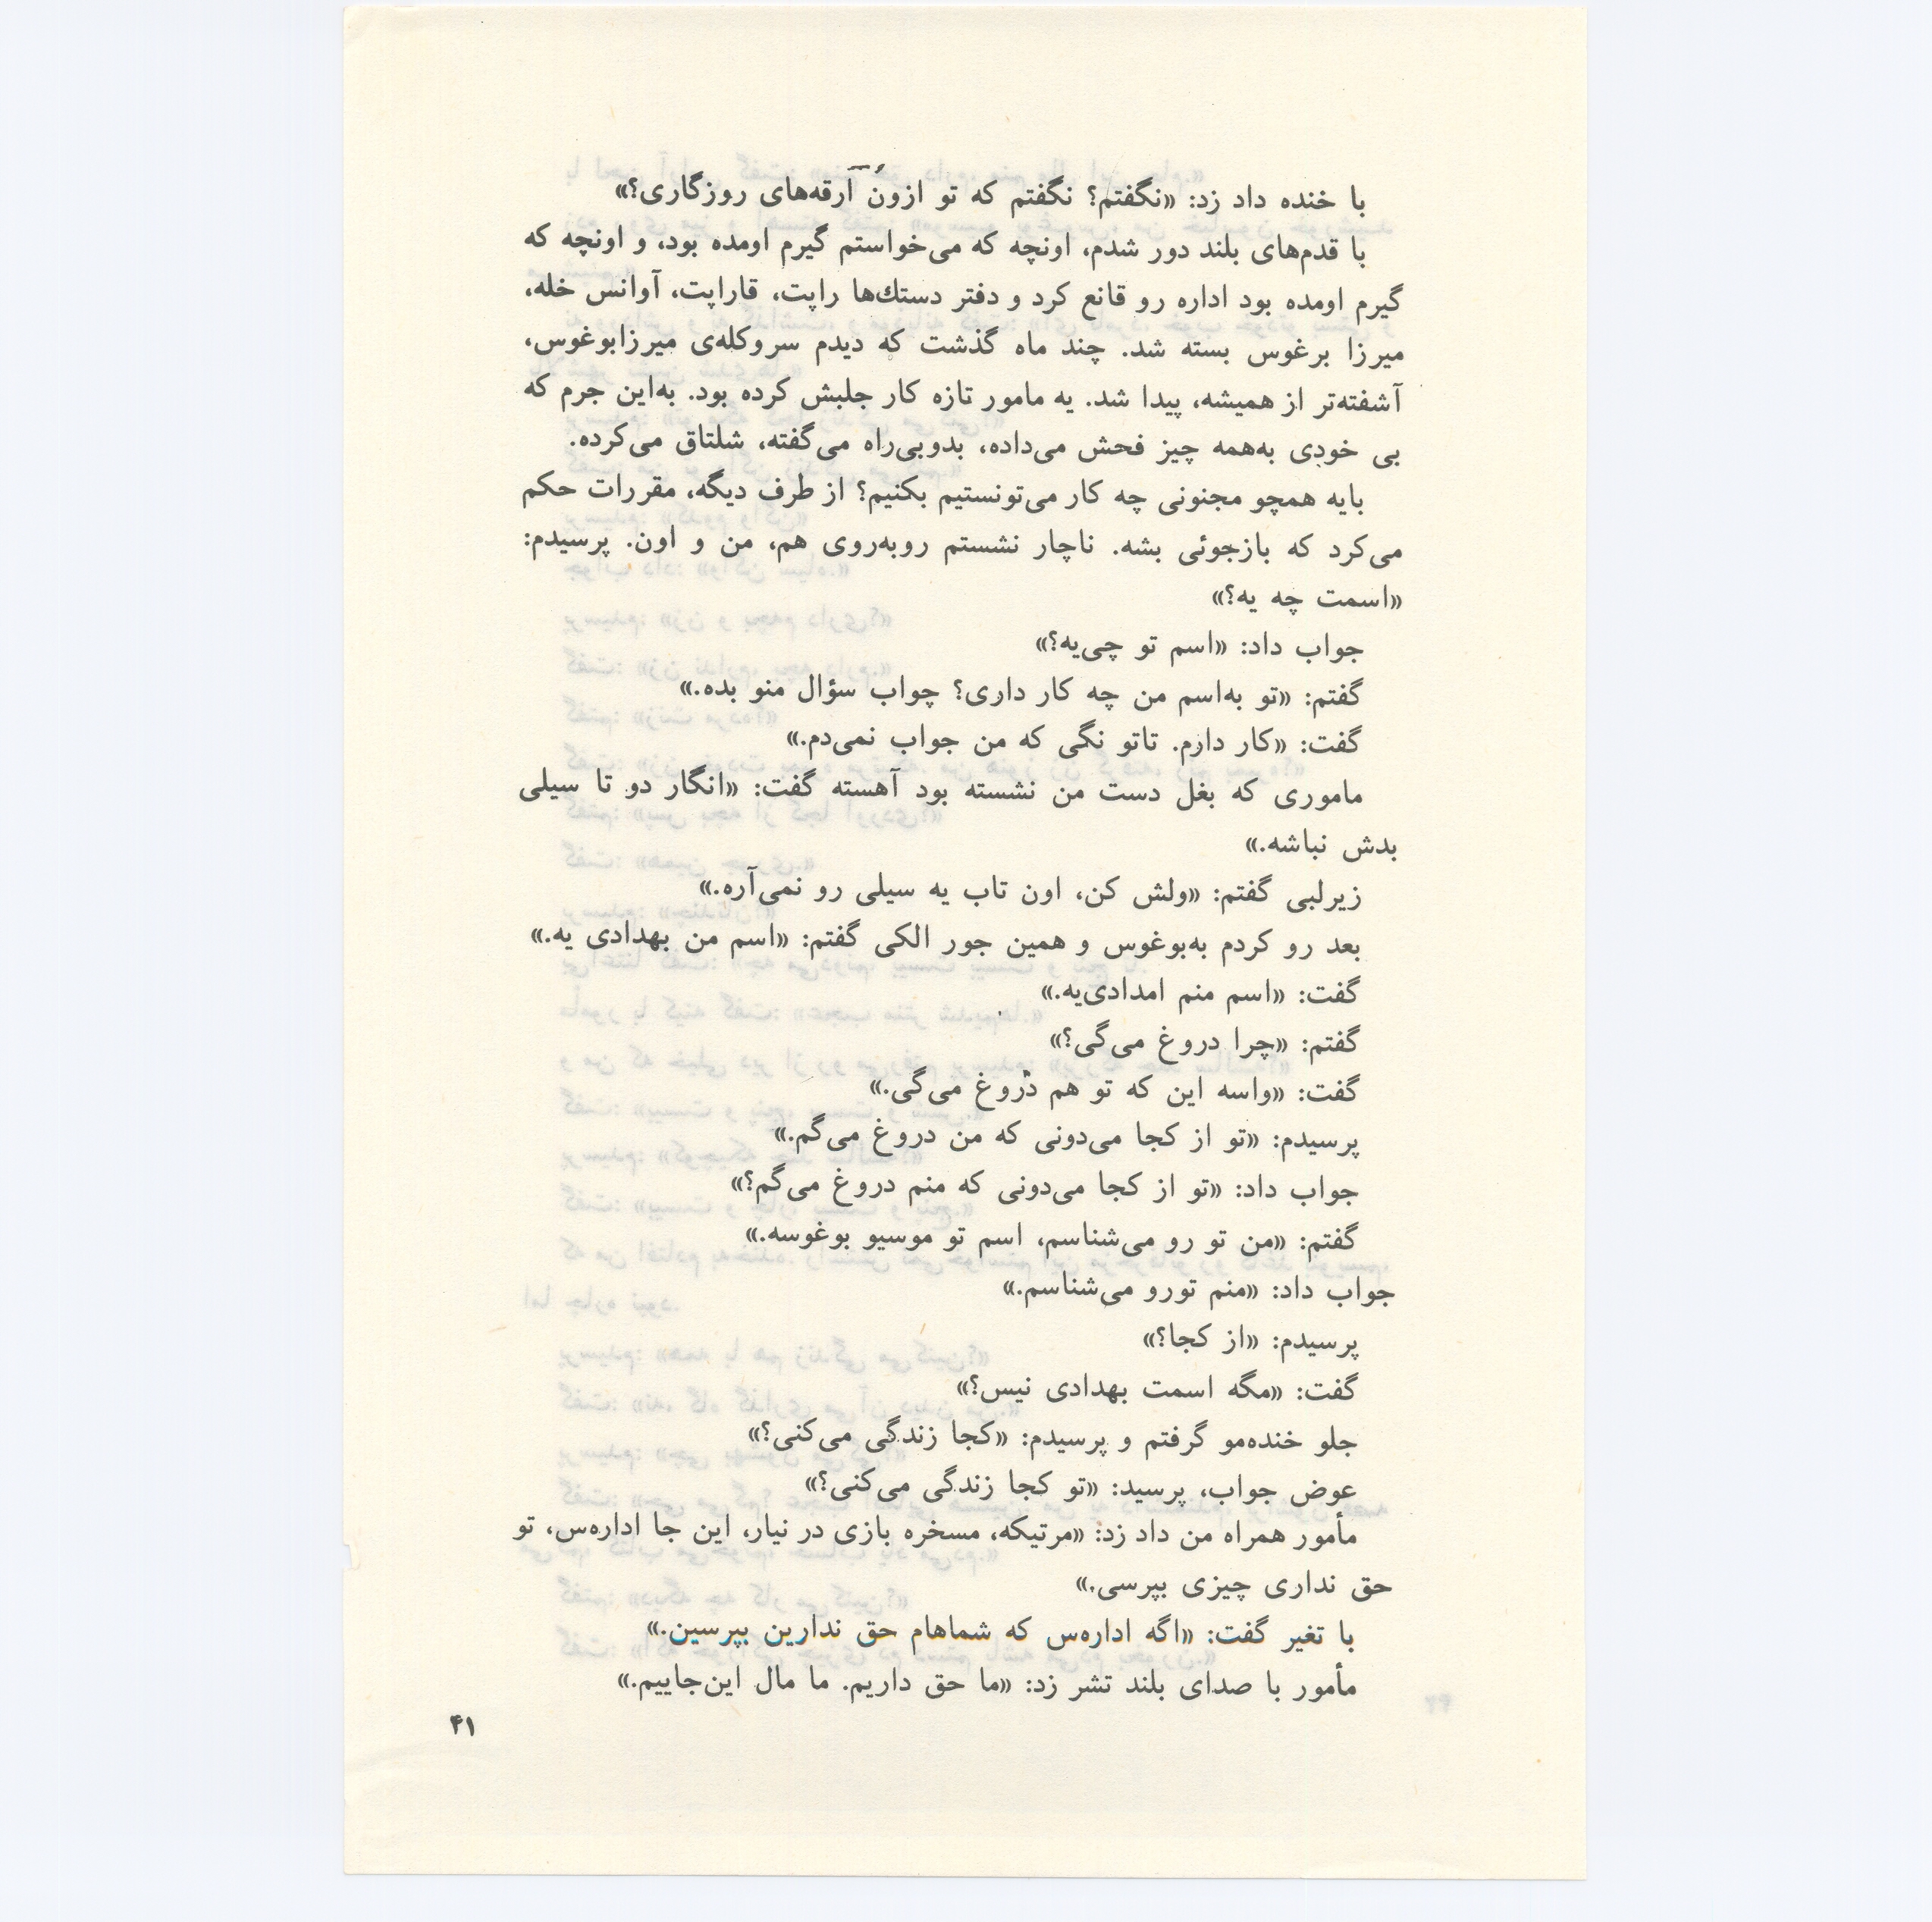 با خنده داد زد: «نگفتم؟ نگفتم که تو ازون اَرقه‌های روزگاری؟»
با قدم‌های بلند دور شدم، اونچه که می‌خواستم گیرم اومده بود، و اونچه که
گیرم اومده بود اداره رو قانع کرد و دفتر دستك‌ها راپت، قاراپت، آوانس خله،
میرزا برغوس بسته شد. چند ماه گذشت که دیدم سروکله‌ی میرزابوغوس،
آشفته‌تر از همیشه، پیدا شد. یه مامور تازه کار جلبش کرده بود. به‌این جرم که
بی خودی به‌همه چیز فحش می‌داده، بدوبی‌راه می‌گفته، شلتاق می‌کرده.
بایه همچو مجنونی چه کار می‌تونستیم بکنیم؟ از طرف دیگه، مقررات حکم
می‌کرد که بازجوئی بشه. ناچار نشستم روبه‌روی هم، من و اون. پرسیدم:
«اسمت چه یه؟»
جواب داد: «اسم تو چی‌یه؟»
گفتم: «تو به‌اسم من چه کار داری؟ چواب سؤال منو بده.»
گفت: «کار دارم. تاتو نگی که من جواب نمی‌دم.»
ماموری که بغل دست من نشسته بود آهسته گفت: «انگار دو تا سیلی
بدش نباشه.»
زیرلبی گفتم: «ولش کن، اون تاب یه سیلی رو نمی‌آره.»
بعد رو کردم به‌بوغوس و همین جور الکی گفتم: «اسم من بهدادی یه.»
گفت: «اسم منم امدادی‌یه.»
گفتم: «چرا دروغ می‌گی؟»
گفت: «واسه این که تو هم دروغ می‌گی.»
پرسیدم: «تو از کجا می‌دونی که من دروغ می‌گم.»
جواب داد: «تو از کجا می‌دونی که منم دروغ می‌گم؟»
گفتم: «من تو رو می‌شناسم، اسم تو موسیو بوغوسه.»
جواب داد: «منم تورو می‌شناسم.»
پرسیدم: «از کجا؟»
گفت: «مگه اسمت بهدادی نیس؟»
جلو خنده‌مو گرفتم و پرسیدم: «کجا زندگی می‌کنی؟»
عوض جواب، پرسید: «تو کجا زندگی می‌کنی؟»
مأمور همراه من داد زد: «مرتیکه، مسخره بازی در نیار، این جا اداره‌س، تو
حق نداری چیزی بپرسی.»
با تغیر گفت: «اگه اداره‌س که شماهام حق ندارین بپرسین.»
مأمور با صدای بلند تشر زد: «ما حق داریم. ما مال این‌جاییم.»
۴۱